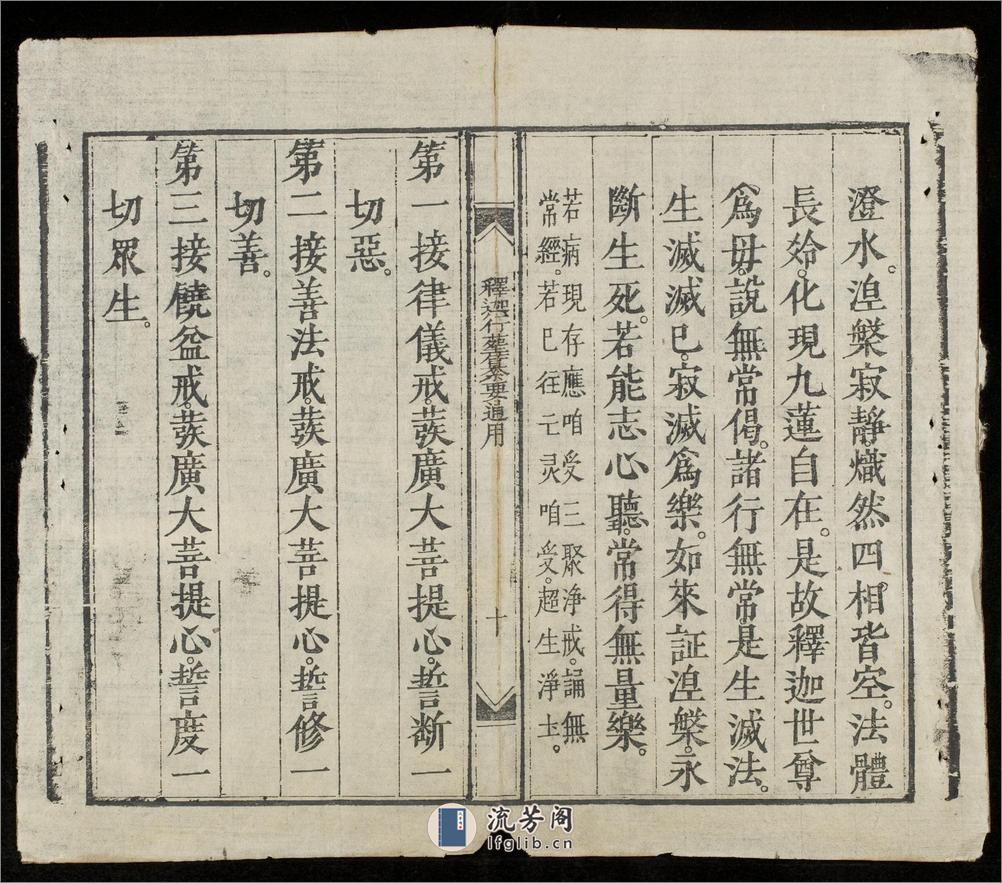 澄水。湼槃寂靜。熾然四相皆空。法體
長舲。化現九蓮自在。是故釋迦世尊
爲毋。說無常偈。諸行無常。是生滅法。
生滅滅已。寂滅爲樂。如來証湼槃。永
斷生死。若能志心聽。常得無量樂。
若病現存應咱受三聚浄戒。誦無
常經。若已往亡灵咱受。超生淨圡。
釋迦行 要通用
十
第一接律儀戒。蕟廣大菩提心。誓断一
切惡。
第二接善法戒。蕟廣大菩提心。誓修一
切善。
第三接饒益戒。蕟廣大菩提心。誓度一
切眾生。
流芳阁
lfglib.cn